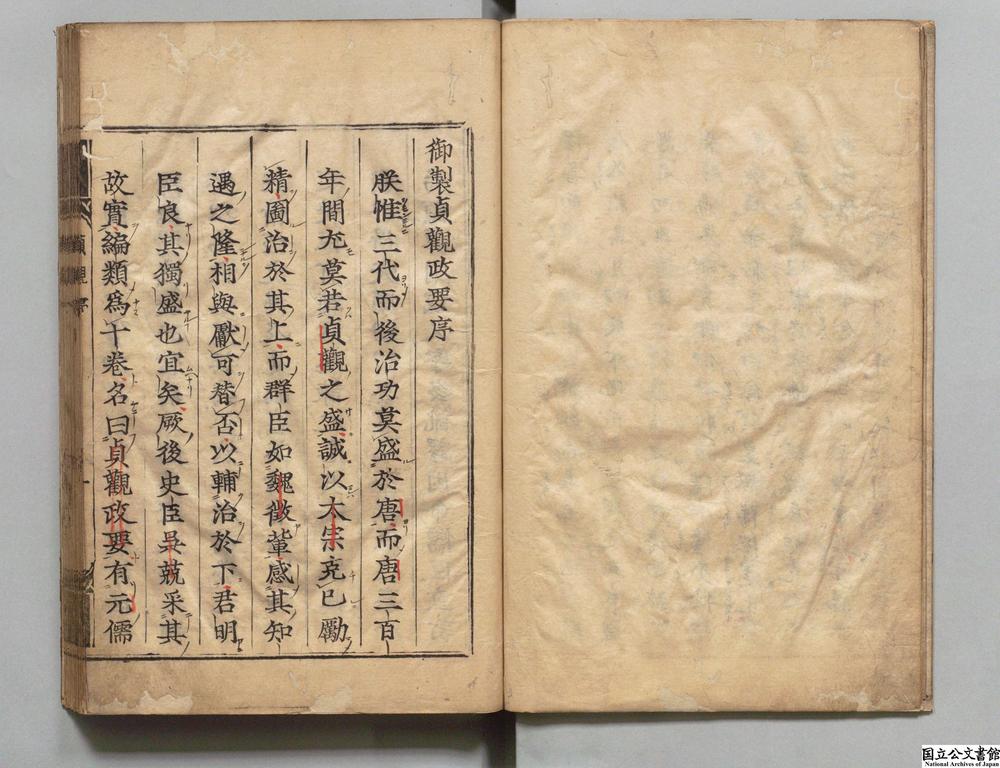 御製貞觀政要序
朕惟三代而後治功莫盛於唐而唐三百
年間尤莫若貞觀之盛誠以太宗克已勵
精圖治於其上而群臣如魏徵輩感其知
遇之隆相與獻可替否以輔治於下君明
臣良其獨盛也宜矣厥後史臣吳兢采其
故實編類爲十卷名曰貞觀政要有元儒
国立公文書館
National Archives of Japan